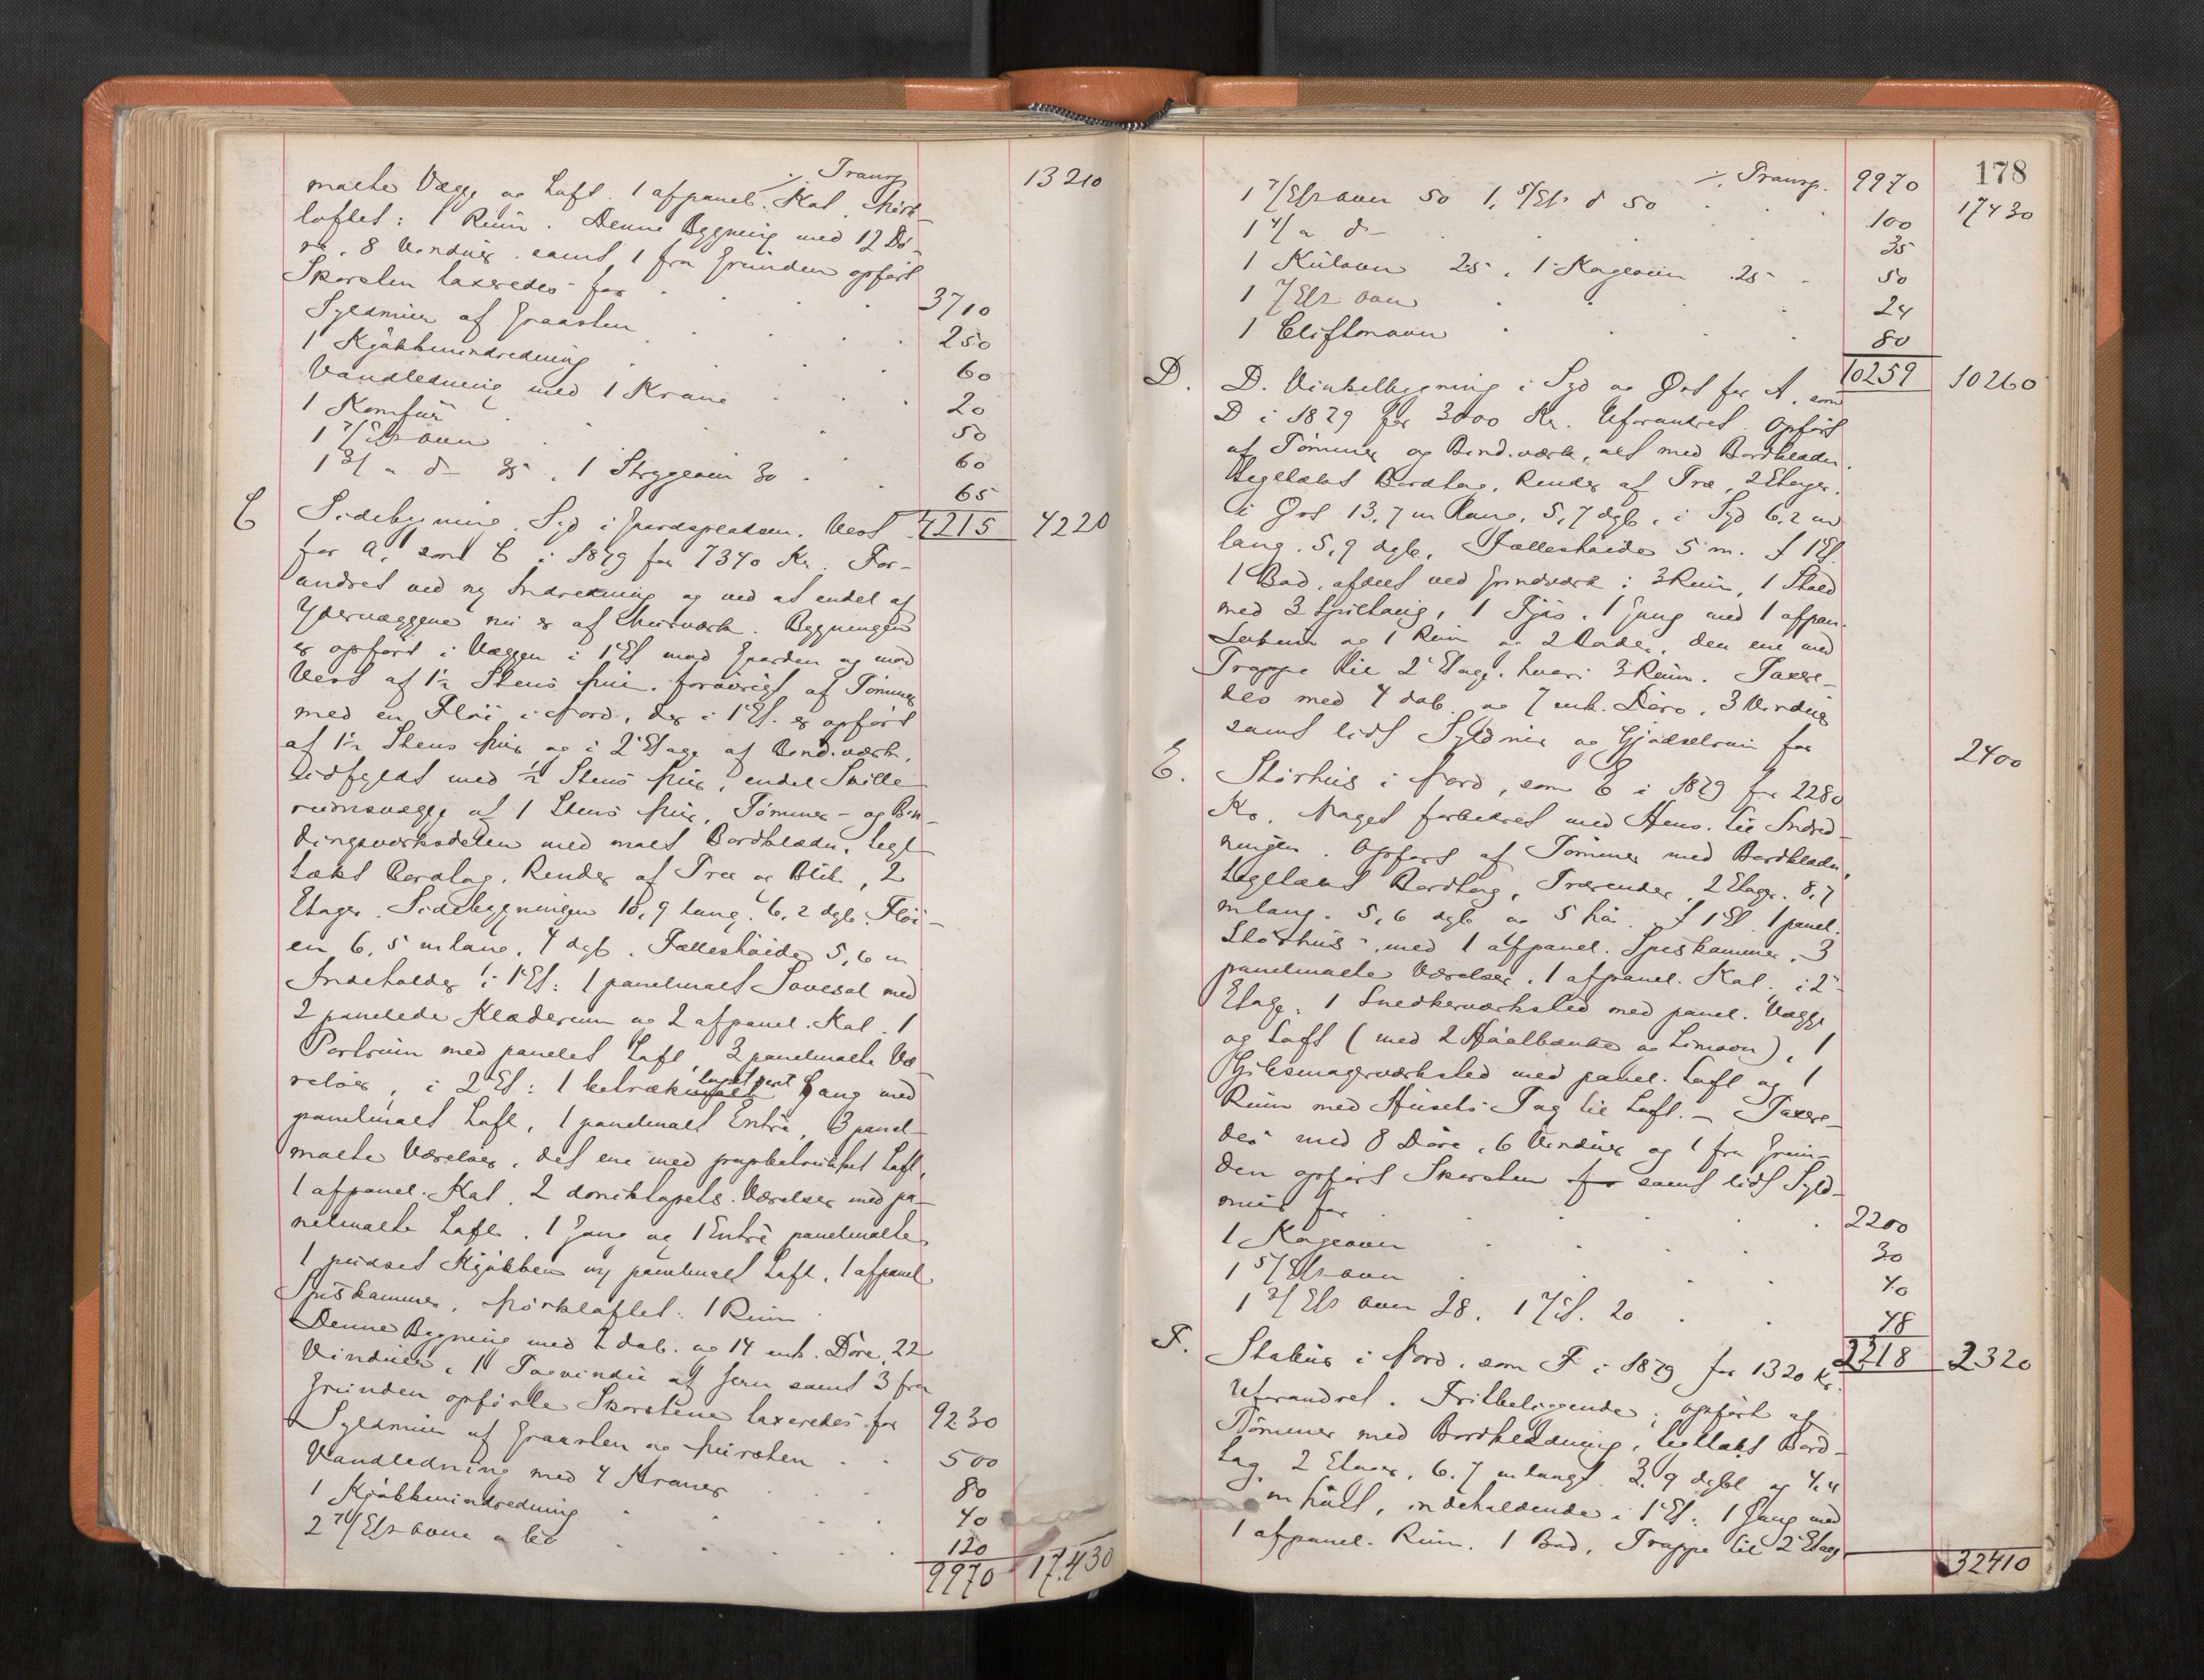 ·/· Transp 13210
malte Vægge og Loft. 1 afpanel. Kot. Mørk-
loftet: 1 Rum. Denne Bygning med 12 Dö-
re, 8 Vinduer samt 1 fra Grunden opført
Skorsten taxeredes for 3710
Syldmur af Graasten 250
1 Kjökkenindredning 60
Vandledning med 1 Krane 20
1 Komfur 50
1 7/ Etsovn 60
1 3/ " do 35, 1 Strygeovn 30 65
C Sidebygning. Syd i Gaardspladsen. Vest 4215 4220
for A, som C i 1879 for 7340 Kr. For-
andret ved ny Indredning og ved at endel af
Ydervæggene nu er af Murværk. Bygningen
er opført i Væggen i 1 Et mod Gaarden og mod
Vest af 1½ Stens Mur, forövrigt af Tömmer
med en Flöi i Nord, der i 1 Et. er opført
af 1½ Stens Mur og i 2 Etage af Bind.værk,
udfyldt med ½ Stens Mur, endel Skille-
rumsvægge af 1 Stens Mur, Tömmer- og Bin-
dingsværksdelen med malt Bordklædn., tegl-
tækt Bordtag, Render af Træ og Blik, 2
Etager. Sidebygningen 10,9 lang, 6,2 dyb. Flöi-
en 6,5 m lang, 4 dyb. Fælleshöide 5,6 m
Indeholder i 1 Et: 1 panelmalt Sovesal med
2 panelede Klæderum og 2 afpanel. Kot. 1
Portrum med panelet Loft, 3 panelmalte Væ-
relser, i 2 Et: 1 betrækmalt Gang med
panelmalt Loft, 1 panelmalt Entré, 3 panel-
malte Værelser, det ene med papbetrukket Loft,
1 afpanel. Kot. 2 do tapets. Værelser med pa-
nelmalte Loft. 1 Gang og 1 Entré panelmalte
1 pudset Kjökken m/ panelmalt Loft, 1 afpanel
Spiskammer. Mörkloftet: 1 Rum
Denne Bygning med 2 dob. og 14 enk. Döre, 22
Vinduer, 1 Tagvindu af Jern samt 3 fra
Grunden opförte Skorstene taxeredes for 9230
Syldmur af Graasten og Mursten 500
Vandledning med 4 Kraner 80
1 Kjökkenindredning 40
2 7/ Etsovne a 60 120
9970 17.430
178
·/· Transp. 9970 17430
1 7/Etsovn 50 1, 5/Ets do 50 100
1 4/ " do 35
1 Kulovn 25, 1 Kageovn 25 50
1 7/Etsovn 24
1 Cliftonovn 80
10259 10260
D. D. Vinkelbygning i Syd og Øst for A, som
D i 1879 for 3000 Kr. Uforandret. Opført
af Tömmer og Bind.værk, alt med Bordklædn.
tegltækt Bordtag, Render af Træ, 2 Etager.
i Øst 13,7 m lang, 5,7 dyb, i Syd 6,2 m
lang, 5,9 dyb. Fælleshöide 5 m. I 1 Et.
1 Bod, afdelt ved Grindværk i 3 Rum, 1 Stald
med 3 Spiltaug, 1 Fjös, 1 Gang med 1 afpan.
Lokum og 1 Rum og 2 Boder, den ene med
Trappe til 2 Etage, hvori 3 Rum. Taxere-
des med 4 dob. og 7 enk. Döre, 3 Vinduer
samt lidt Syldmur og Gjödselrum for 2400
E. Störhus i Nord, som E i 1879 for 2280
Kr. Noget forbedret med Hens. til Indred-
ningen. Opført af Tömmer med Bordklædn.,
tegltækt Bordtag, Trærender, 2 Etager, 8,7
m lang, 5,6 dyb og 5 höi. I 1 Et. 1 panel.
Störhus, med 1 afpanel. Spiskammer, 3
panelmalte Værelser, 1 afpanel. Kot. i 2
Etage. 1 Snedkerværksted med panel. Vægge
og Loft (med 2 Höölbænke og Limovn), 1
Gjibsmagerværksted med panel. Loft og 1
Rum med Husets Tag til Loft. - Taxere-
des med 8 Döre, 6 Vinduer og 1 fra Grun-
den opført Skorsten for samt lidt Syld-
mur for 2200
1 Kageovn 30
1 5/Etsovn 40
1 3/ Ets ovn 28. 1 7/Et. 20 48
2318 2320
F. Stabur i Nord, som F i 1879 for 1320 Kr.
Uforandret. Fritbeliggende, opført af
Tömmer med Bordklædning, tegltækt Bord-
tag, 2 Etager, 6.7 m langt 3,9 dybt og 4,4
m höit, indeholdende i 1 Et: 1 Gang med
1 afpanel. Rum, 1 Bod, Trappe til 2 Etage
32410